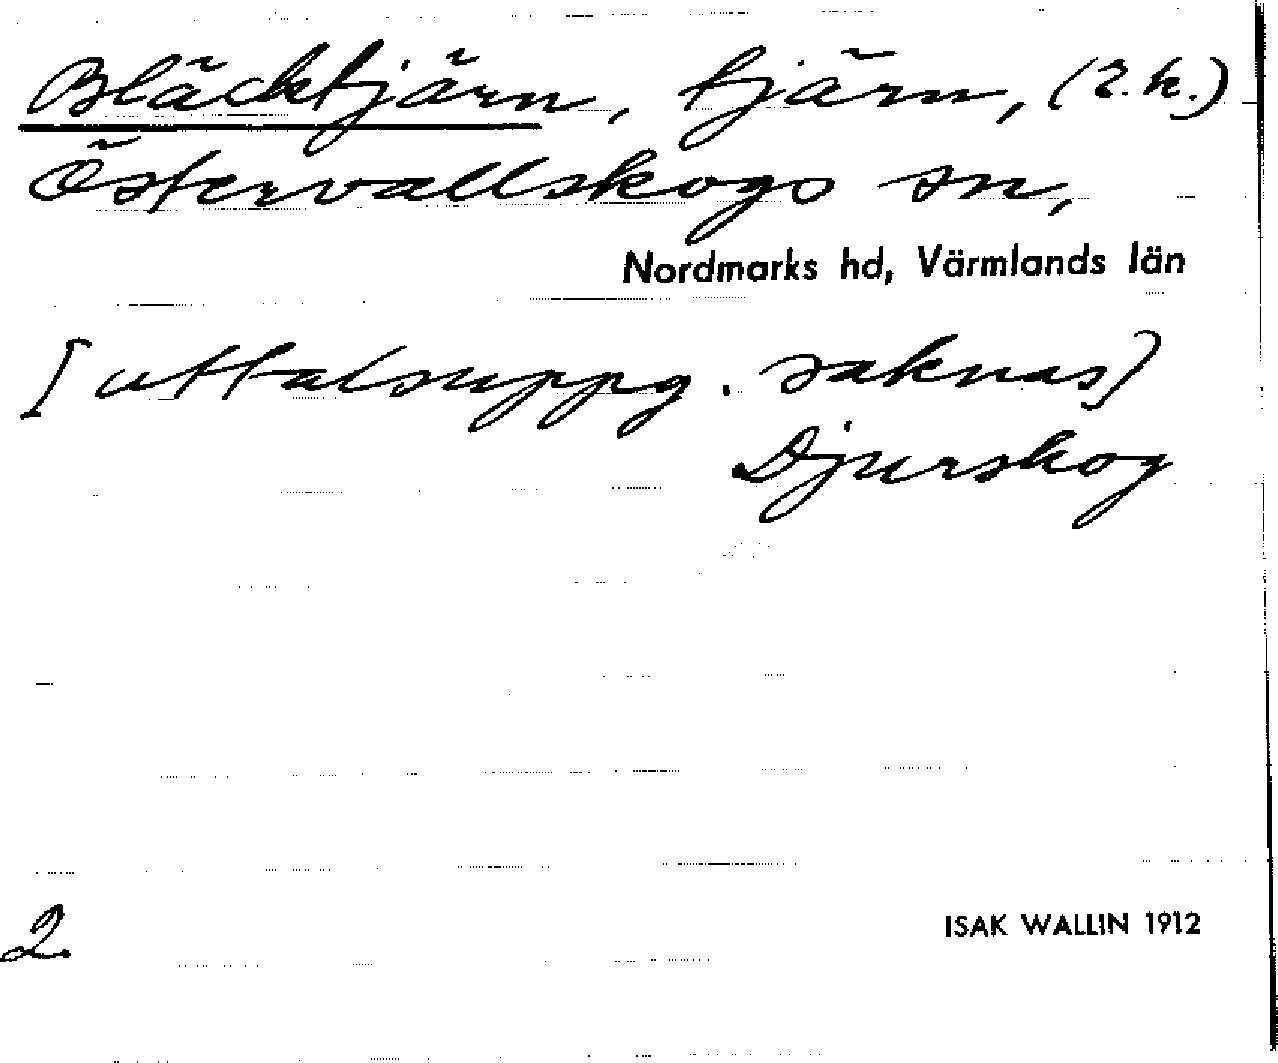 Bläcktjärn, tjärn, (2.k.)
Östervallskogs sn,
Nordmarks hd, Värmlands län
[uttalsuppg. saknas]
Djurskog
2
ISAK WALLIN 1912